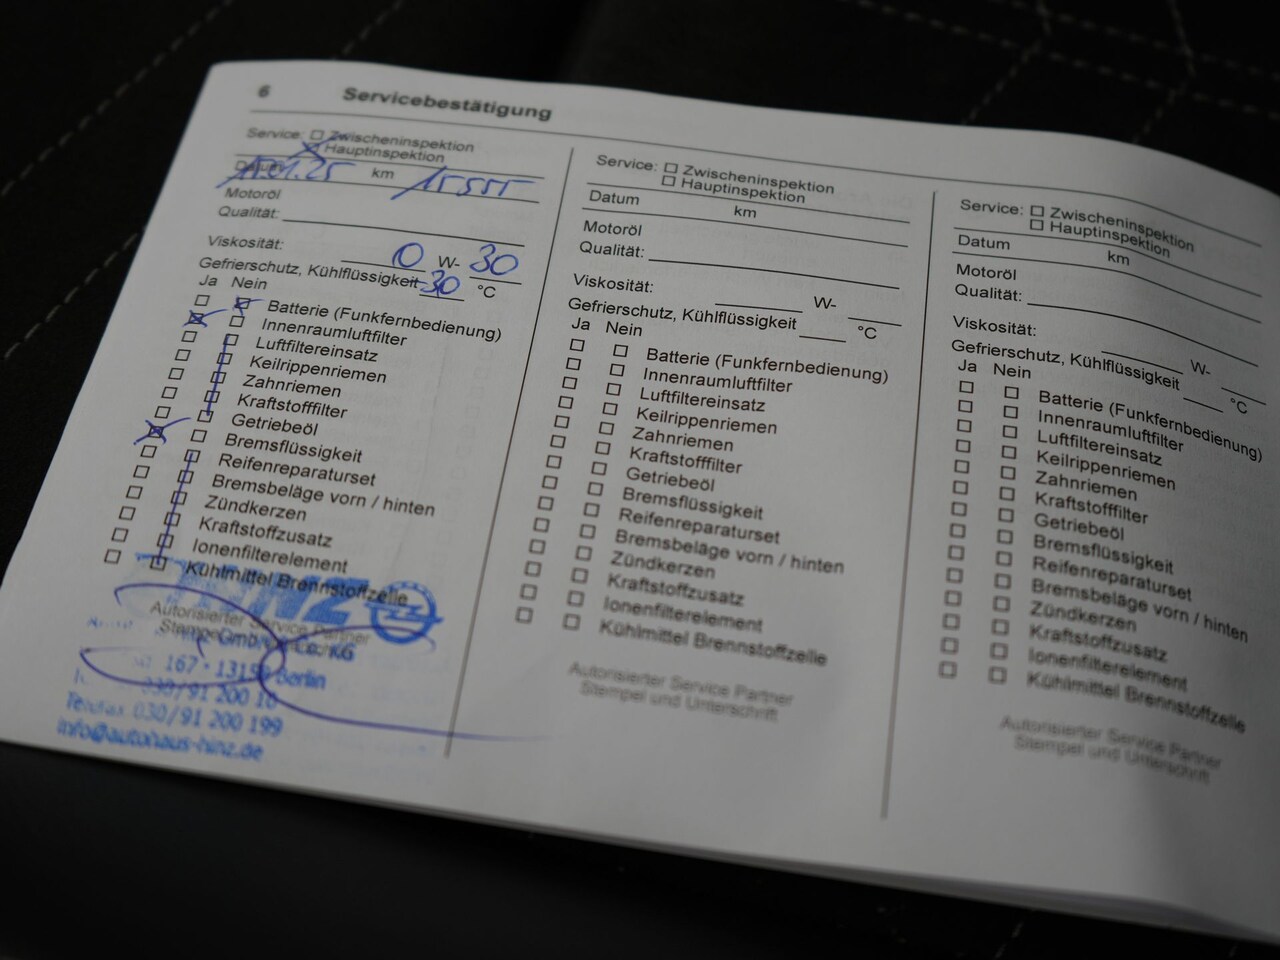 6 Servicebestätigung
Service: Zwischeninspektion
Hauptinspektion
Datum .01.25 km 15555
Motoröl
Qualität:
Viskosität: 0 W- 30
Gefrierschutz, Kühlflüssigkeit -30 °C
Ja Nein
Batterie (Funkfernbedienung)
Innenraumluftfilter
Luftfiltereinsatz
Keilrippenriemen
Zahnriemen
Kraftstofffilter
Getriebeöl
Bremsflüssigkeit
Reifenreparaturset
Bremsbeläge vorn / hinten
Zündkerzen
Kraftstoffzusatz
Ionenfilterelement
Kühlmittel Brennstoffzelle
HINZ
Autorisierter Service Partner
Stempel
GmbH & Co. KG
167 · 13159 Berlin
030/91 200 10
Telefax 030/91 200 199
info@autohaus-hinz.de
Service: Zwischeninspektion
Hauptinspektion
Datum km
Motoröl
Qualität:
Viskosität: W-
Gefrierschutz, Kühlflüssigkeit °C
Ja Nein
Batterie (Funkfernbedienung)
Innenraumluftfilter
Luftfiltereinsatz
Keilrippenriemen
Zahnriemen
Kraftstofffilter
Getriebeöl
Bremsflüssigkeit
Reifenreparaturset
Bremsbeläge vorn / hinten
Zündkerzen
Kraftstoffzusatz
Ionenfilterelement
Kühlmittel Brennstoffzelle
Autorisierter Service Partner
Stempel und Unterschrift
Service: Zwischeninspektion
Hauptinspektion
Datum km
Motoröl
Qualität:
Viskosität: W-
Gefrierschutz, Kühlflüssigkeit °C
Ja Nein
Batterie (Funkfernbedienung)
Innenraumluftfilter
Luftfiltereinsatz
Keilrippenriemen
Zahnriemen
Kraftstofffilter
Getriebeöl
Bremsflüssigkeit
Reifenreparaturset
Bremsbeläge vorn / hinten
Zündkerzen
Kraftstoffzusatz
Ionenfilterelement
Kühlmittel Brennstoffzelle
Autorisierter Service Partner
Stempel und Unterschrift